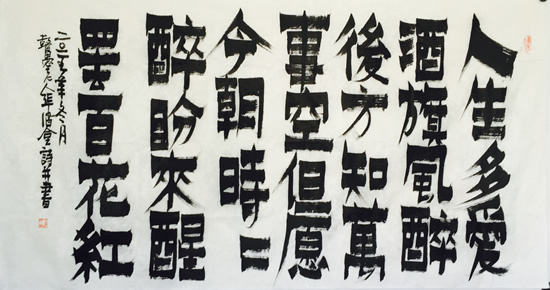 人生多愛
酒旗風醉
後方知萬
事空但愿
今朝時〻
醉盼來醒
罢百花紅
二〇一五年冬月
老人年 詩并書